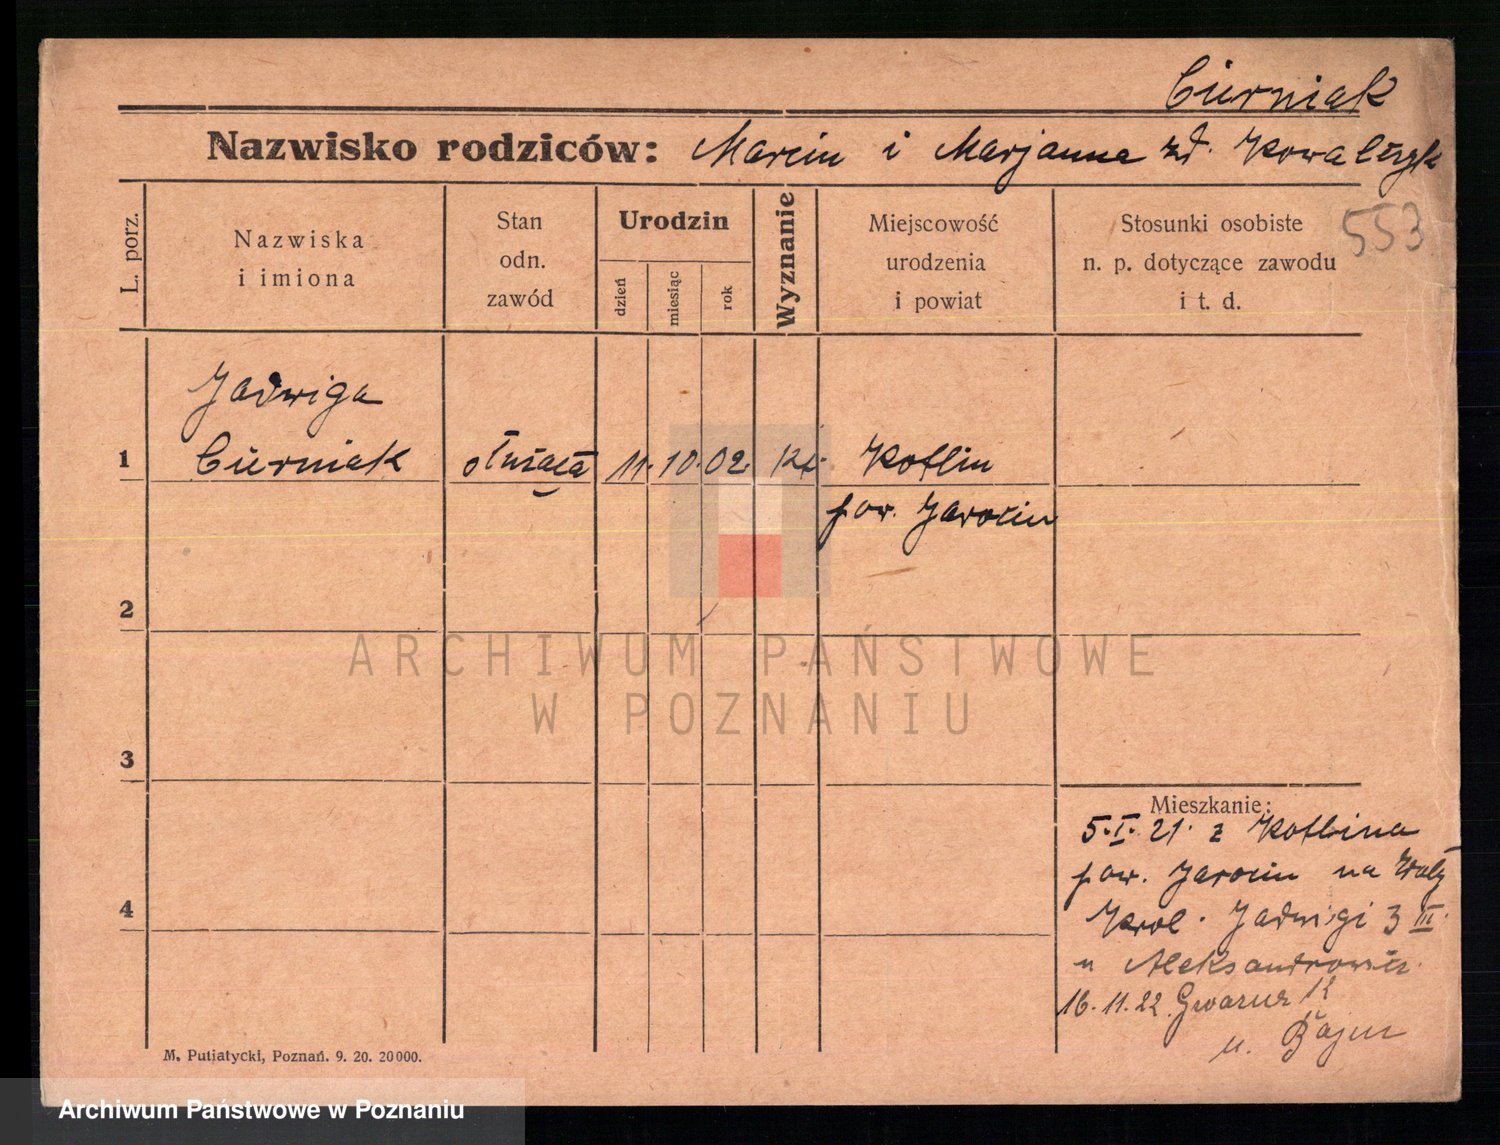 Cierniak
Nazwisko rodziców: Marcin i Marjanna zd. Kowalczyk
553
L. porz.
Nazwiska
i imiona
Stan
odn.
zawód
Urodzin
dzień
miesiąc
rok
Wyznanie
Miejscowość
urodzenia
i powiat
Stosunki osobiste
n. p. dotyczące zawodu
i t. d.
Jadwiga
1 Cierniak służąca 11. 10. 02. kt. Kotlin
pow. Jarocin
2
3
4
ARCHIWUM PAŃSTWOWE
W POZNANIU
Mieszkanie:
5.I.21. z Kotlina
pow. Jarocin na Wały
Krol. Jadwigi 3 III.
u Aleksandrowicz
16.11.22. Gwarna 12
u.
M. Putiatycki, Poznań. 9. 20. 20000.
Archiwum Państwowe w Poznaniu